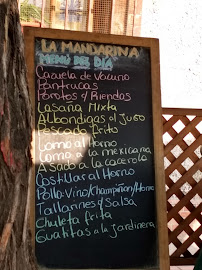 LA MANDARINA
MENÚ DEL DÍA
Cazuela de Vacuno
Pantrucas
Porotos c/ Riendas
Lasaña Mixta
Albondigas al Jugo
Pescado frito
Lomo al Horno
Lomo a la mexicana
Asado a la cacerola
Costillar al Horno
Pollo: Vino/Champiñon/Horno
Tallarines c/ Salsa
Chuleta frita
Guatitas a la jardinera